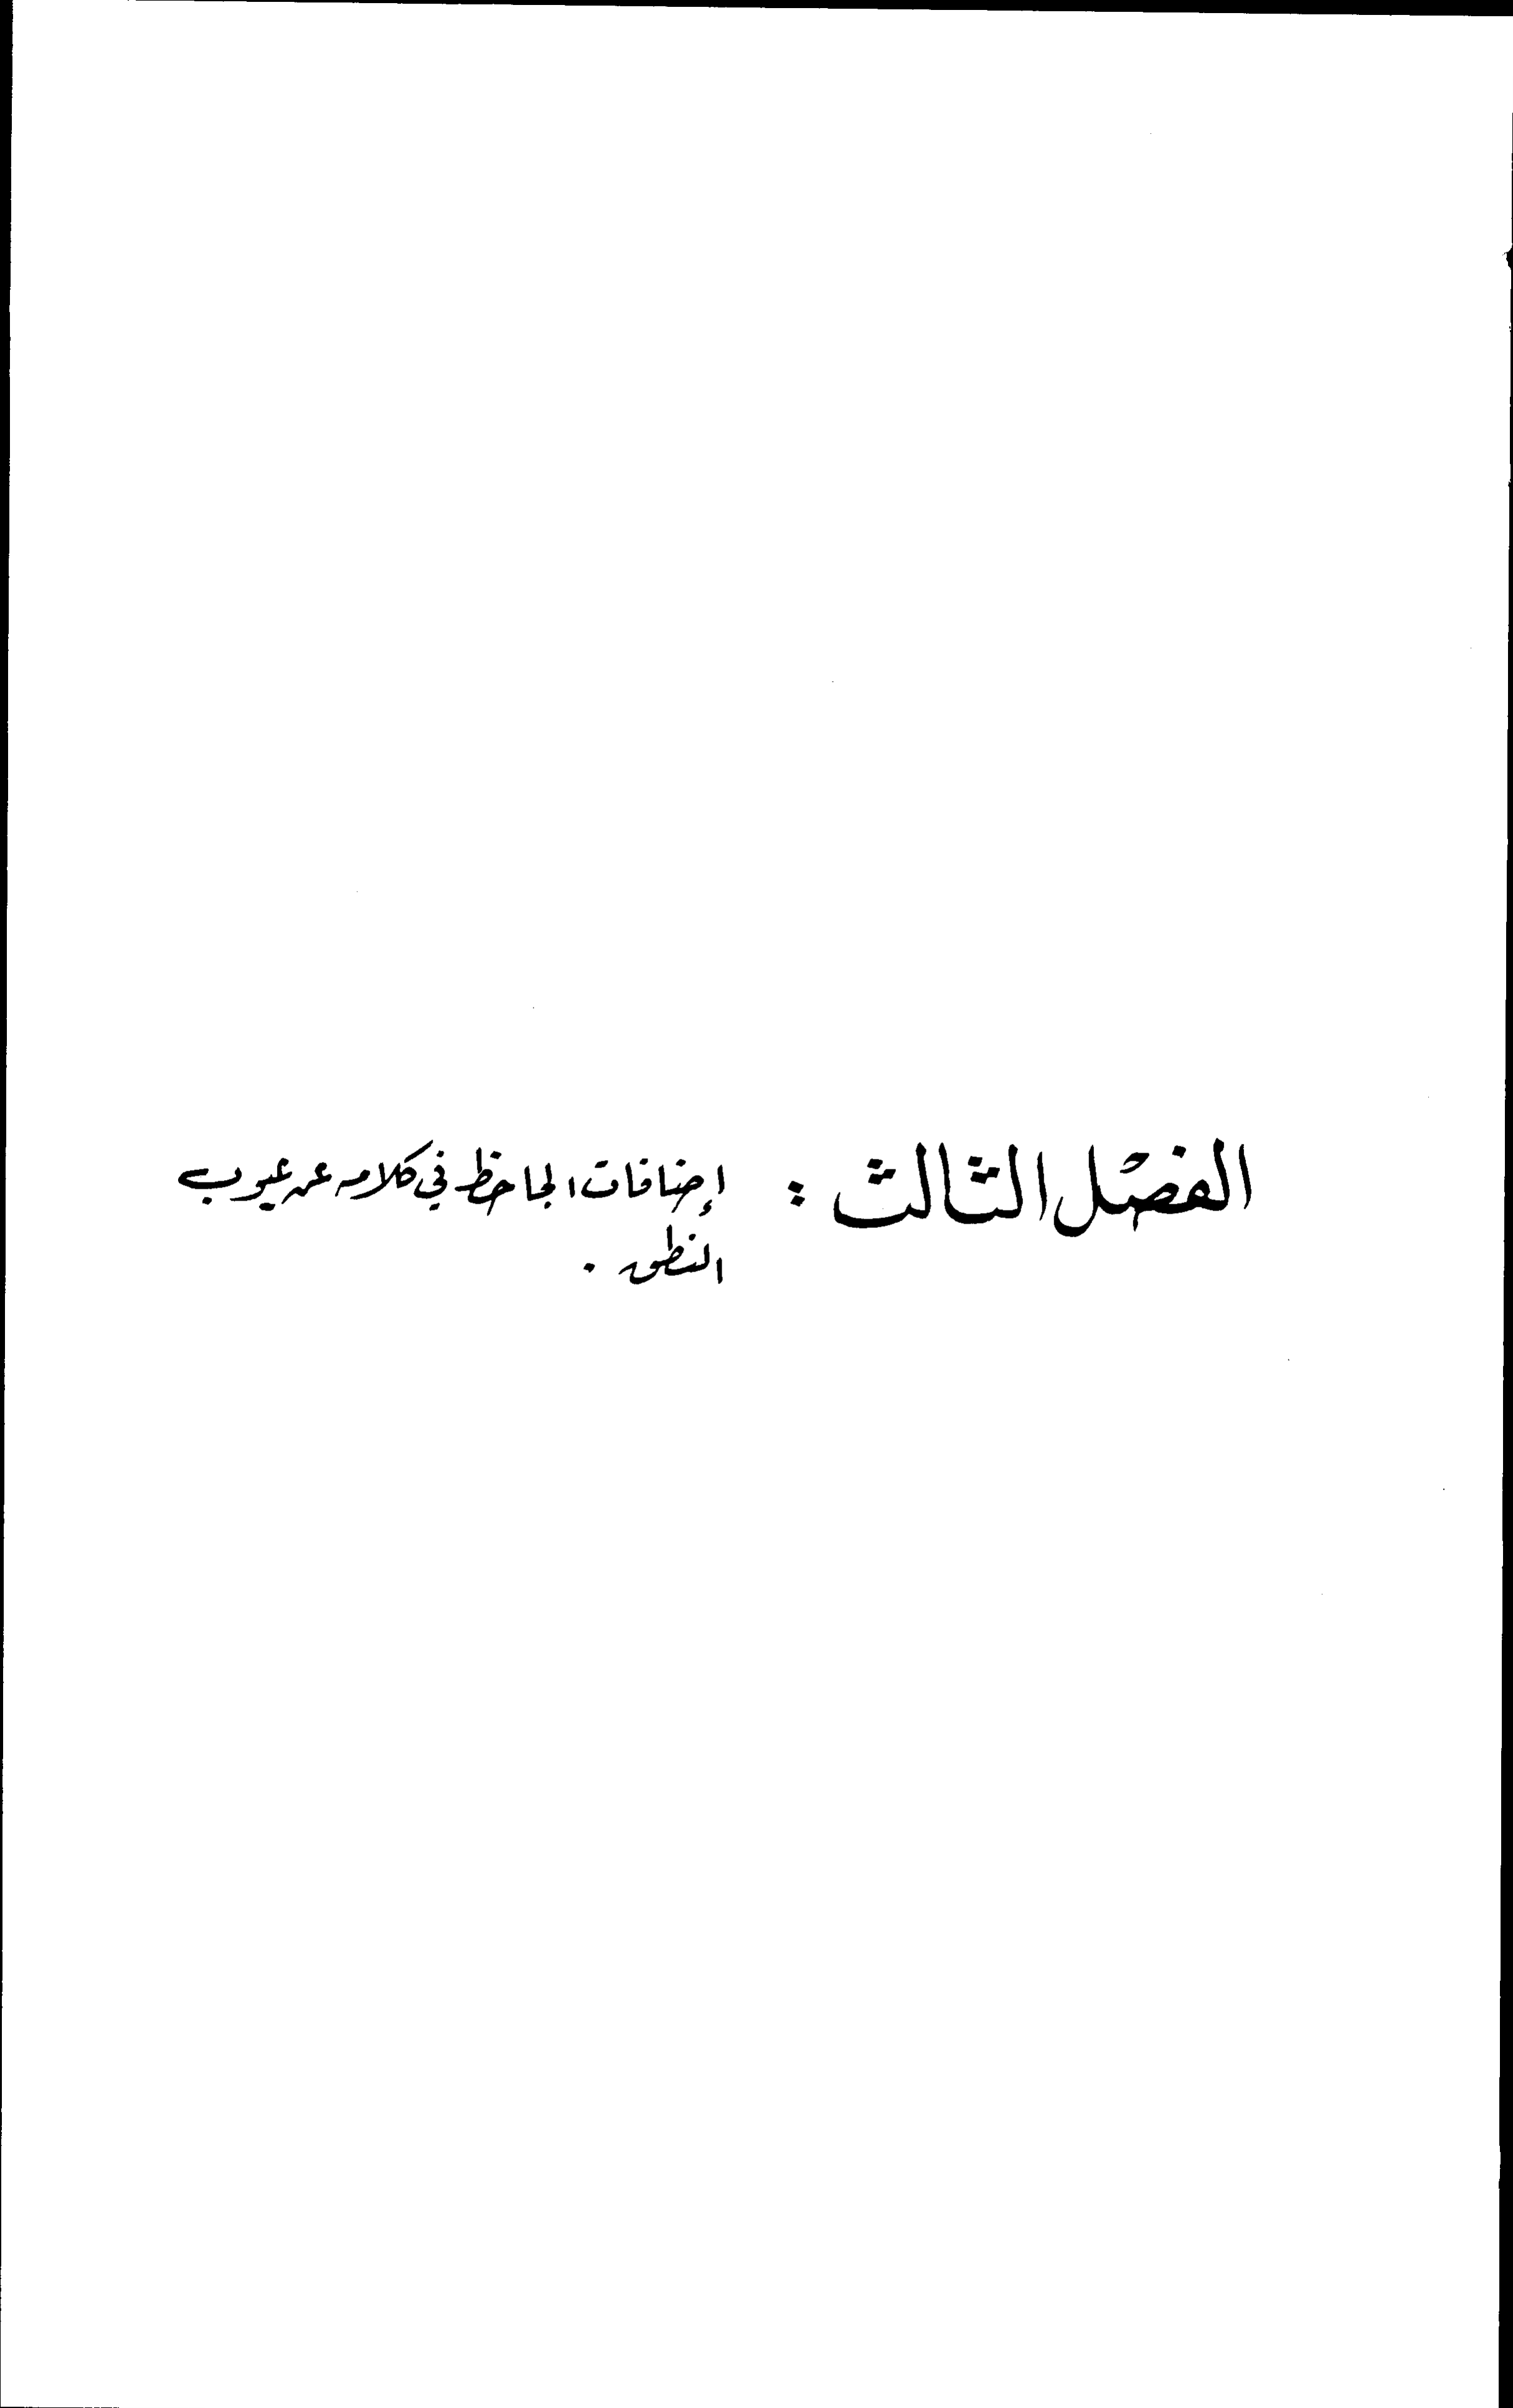 الفصل الثالث : إضافات الجاحظ في كلامه عن عيوب
النطق .